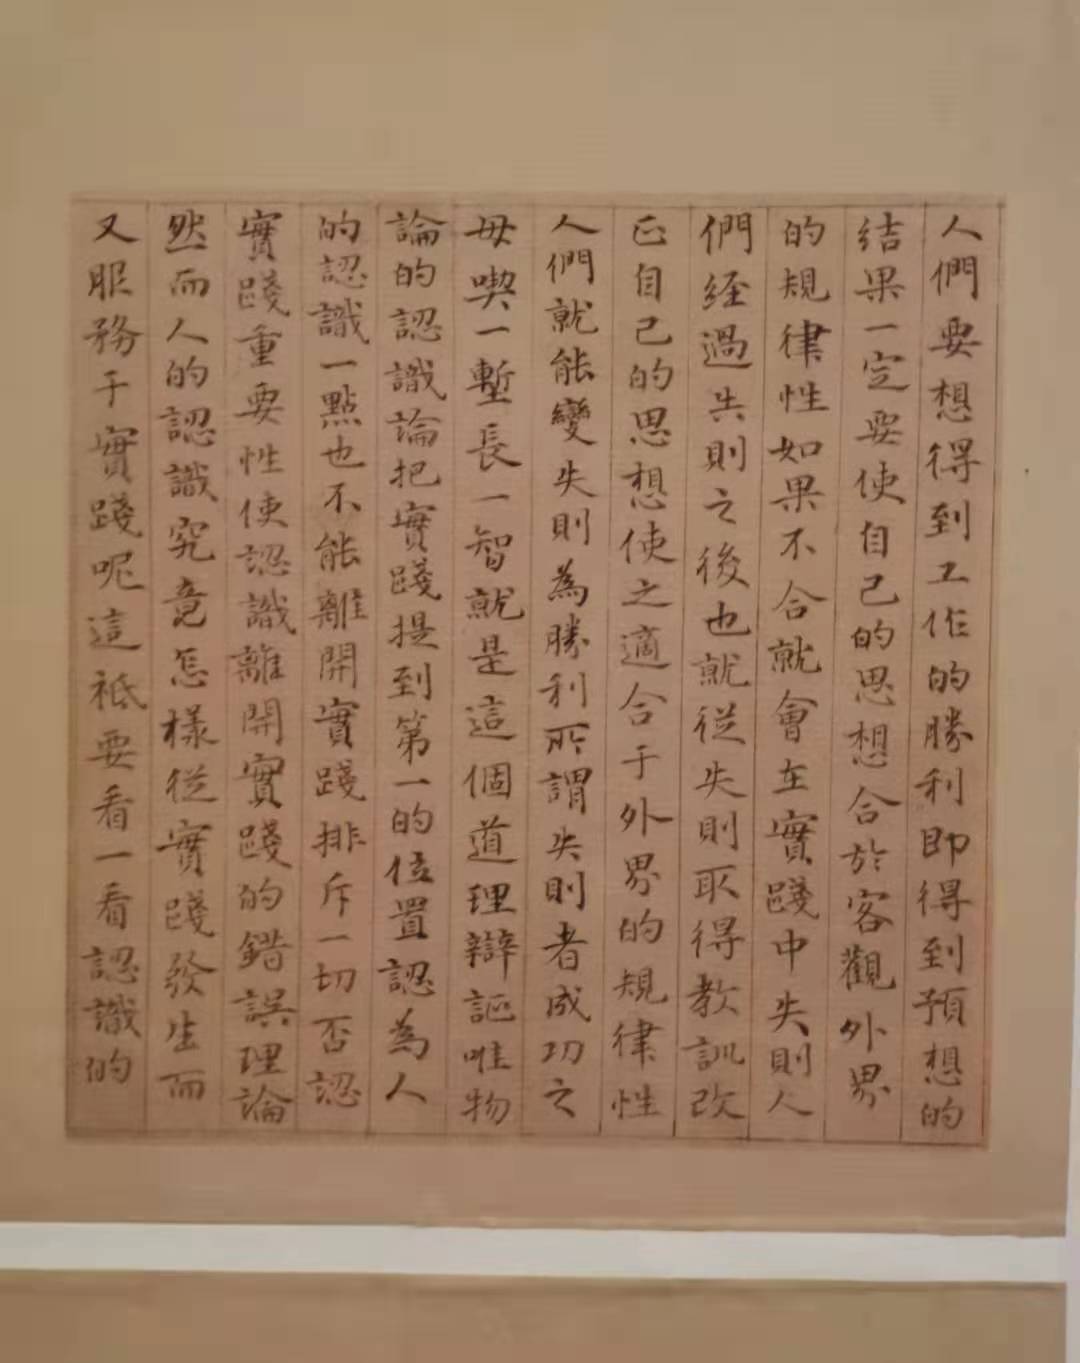 人們要想得到工作的勝利即得到預想的
結果一定要使自己的思想合於客觀外界
的規律性如果不合就會在實踐中失則人
們經過失則之後也就從失則取得教訓改
正自己的思想使之適合于外界的規律性
人們就能變失則為勝利所謂失則者成功之
母喫一塹長一智就是這個道理辯証唯物
論的認識論把實踐提到第一的位置認為人
的認識一點也不能離開實踐排斥一切否認
實踐重要性使認識離開實踐的錯誤理論
然而人的認識究竟怎樣從實踐發生而
又服務于實踐呢這祗要看一看認識的